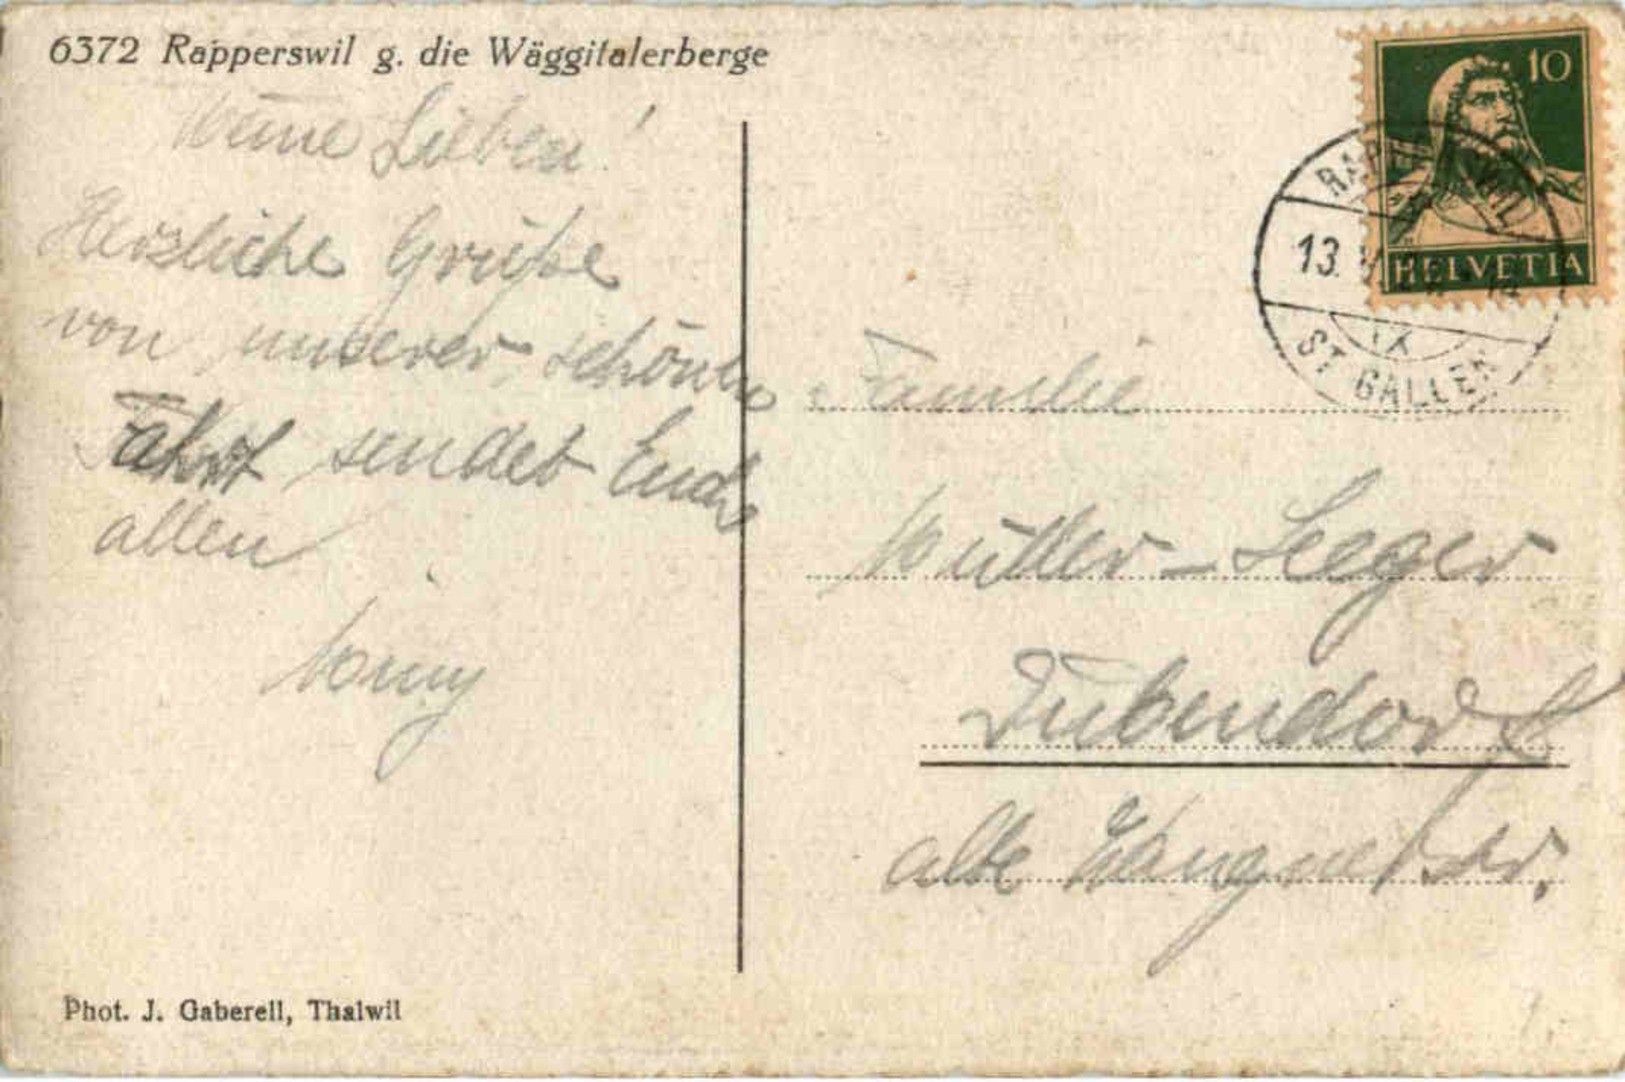 6372 Rapperswil g. die Wäggitalerberge
Meine Lieben!
Herzliche Grüße
von unserer schönen
Fahrt sendet Euch
allen
10
HELVETIA
RAPPERSWIL
13. V
IX
ST GALLEN
Familie
Müller-Seeger
Dübendorf
alte
Phot. J. Gaberell, Thalwil